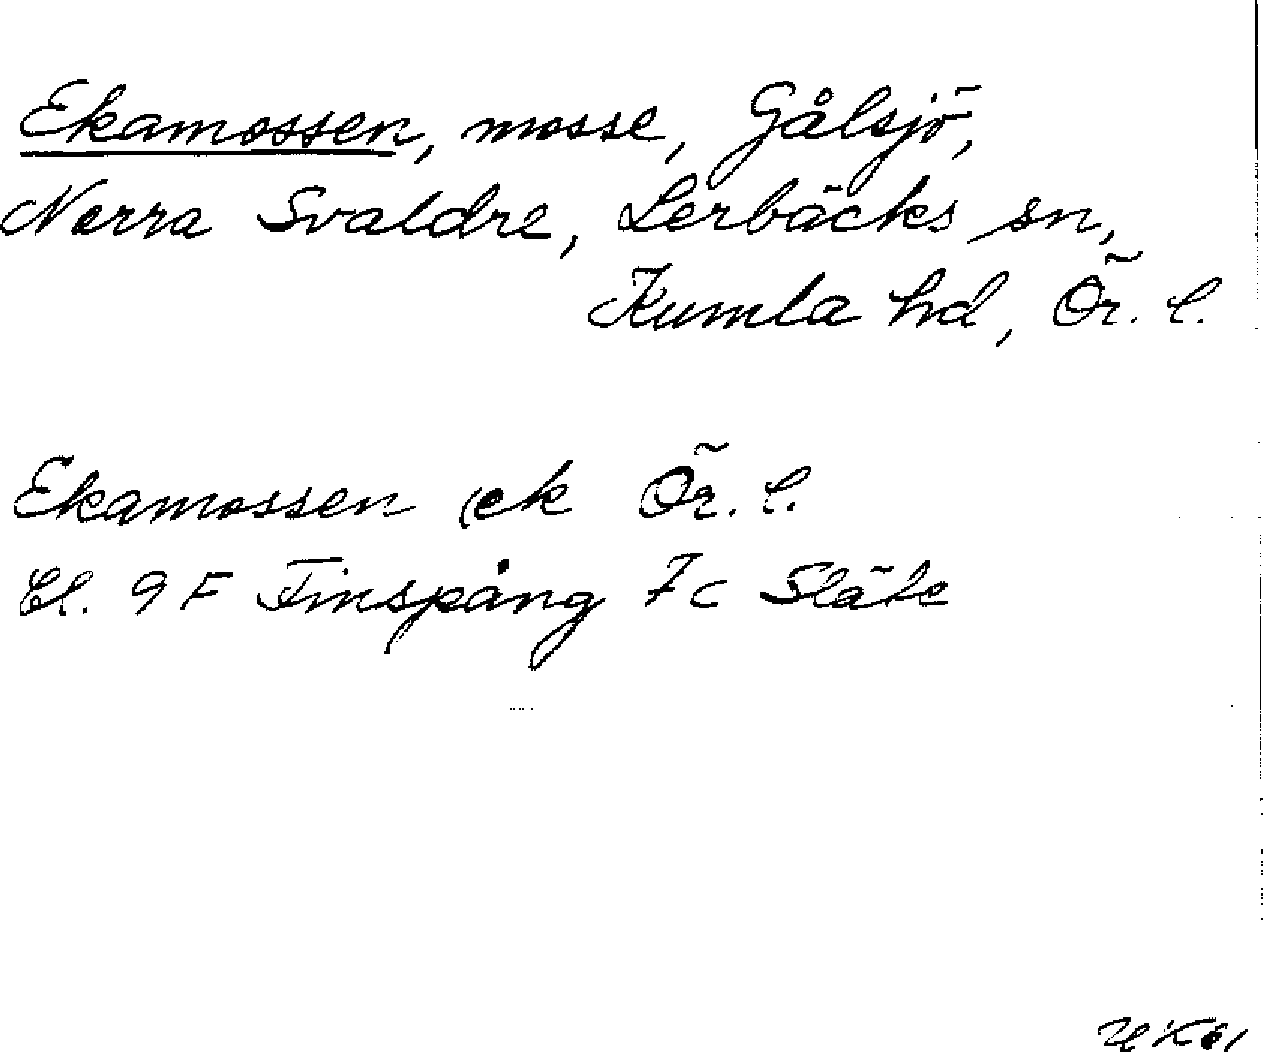 Ekamossen, mosse, Gålsjö,
Norra Svaldre, Lerbäcks sn,
Kumla hd, Ör. l.
Ekamossen ek Ör. l.
Bl. 9 F Finspång 7c Släte
UK61